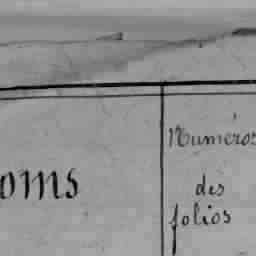 oms
Numéros
des
folios